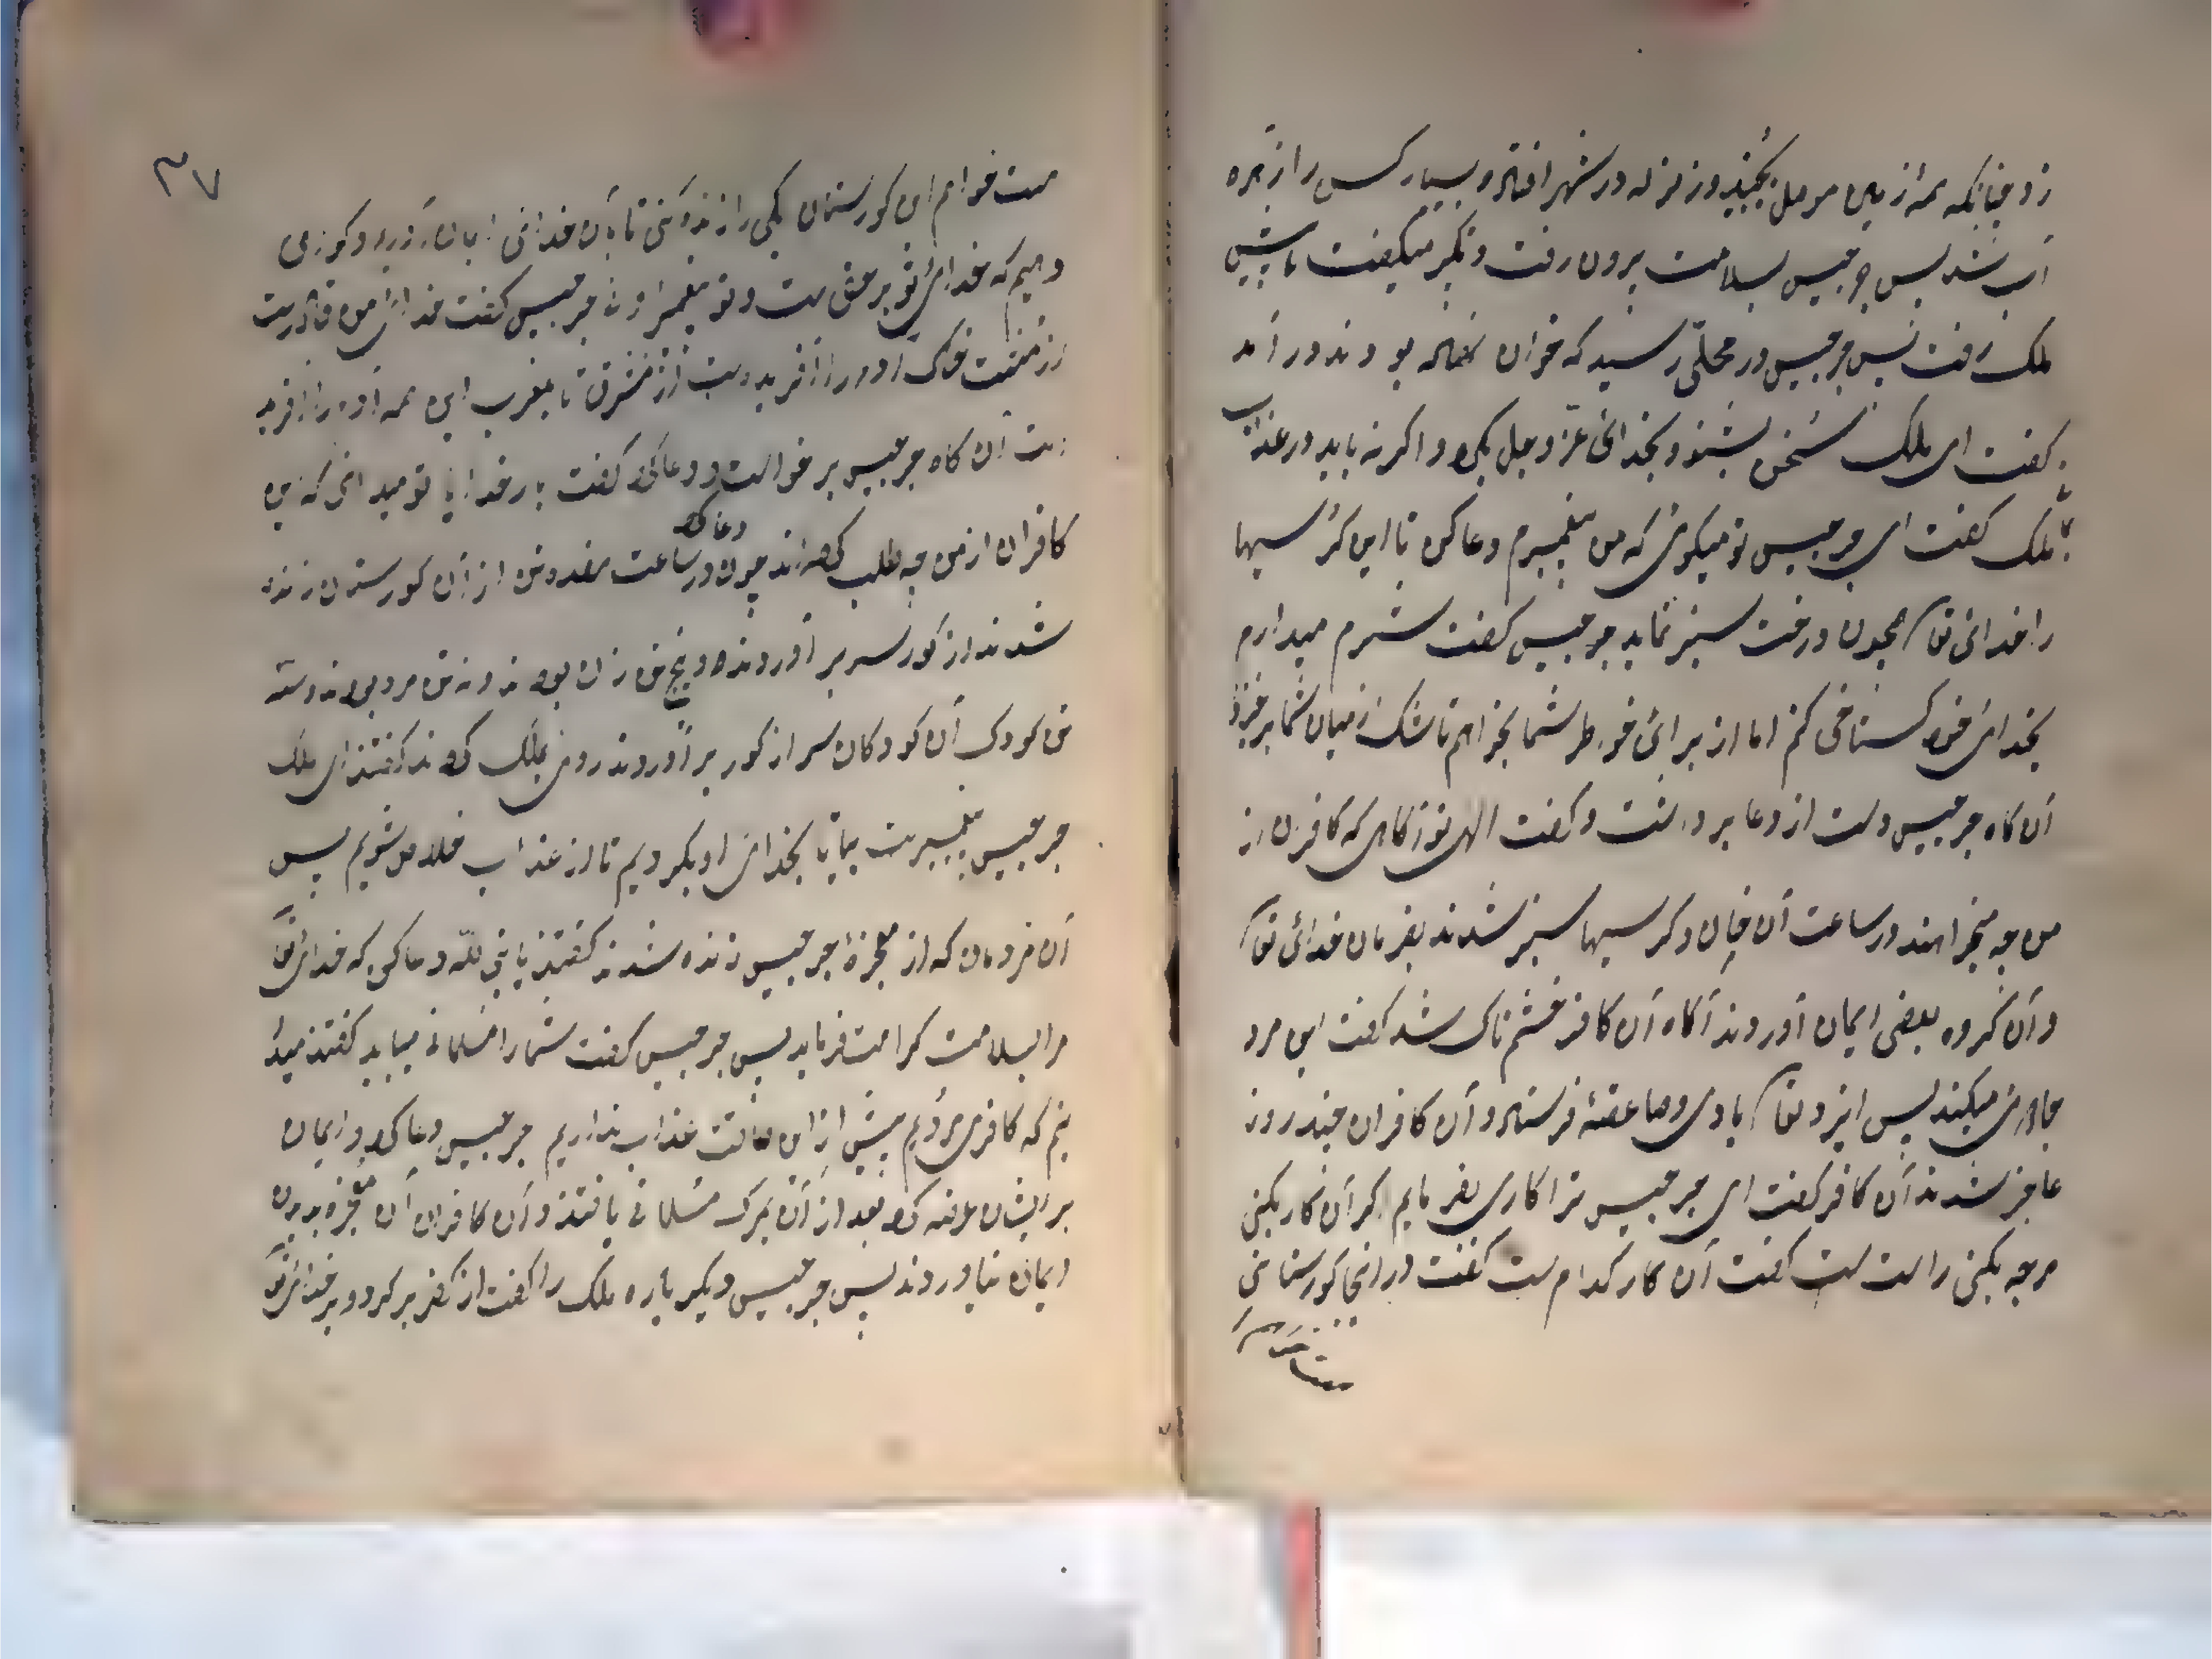 زد چنانکه همه زمین موصل بجنبید و زلزله در شهر افتاد و بسیار کس را زهره
آب شد پس جرجیس بسلامت برون رفت و تکبیر میگفت تا پیش
ملک رفت پس جرجیس در محلی رسید که خوان نهاده بودند درآمد
گفت ای ملک سخن بشنو و بخدای عزوجل بگرو اگر نه باید در عذاب
ملک گفت ای جرجیس تو میگوی که من پیغمبرم دعا کن تا این کرسیها
را خدای تعا همچون درخت سبز نماید جرجیس گفت شرم میدارم
بخدای خود گستاخی کنم اما از برای خواطر شما بخواهم تا شک از میان شما برخیزد
آن گاه جرجیس دست از دعا برداشت و گفت الهی تو آگاهی که کافران از
من چه میخواهند در ساعت آن خوان و کرسیها سبز شدند بفرمان خدائی تعا
و آن گروه بعضی ایمان آوردند آنگاه آن کافر خشم ناک شد گفت این مرد
جادوی میکند پس ایزد تعا بادی و صاعقهٔ فرستاد و آن کافران چند روز
عاجز شدند آن کافر گفت ای جرجیس ترا کاری بفرمایم اگر آن کار بکنی
هرچه بکنی راست است گفت آن کار کدام است گفت در اینجا گورستانی
است خواهم
است خواهم این گورستان یکی را زنده کنی تا بآن خدائی ایمان آوریم و گواهی
دهیم که خدای تو بر حق است و تو پیغمبر اوئی جرجیس گفت خدای من قادرست
از مشت خاک آدم را آفریده است از مشرق تا بمغرب این همه آدم را آفرید
است آن گاه جرجیس برخواست و دعا کرد گفت بار خدایا تو میدانی که این
کافران از من چه طلب کرده اند چون دعا کرد در ساعت هفده تن از آن گورستان زنده
شدند از گور سر برآوردند و پنج تن زنان بودند و نه تن مرد بودند و سه
تن کودک آن کودکان سر از گور برآوردند روی بملک کردند گفتند ای ملک
جرجیس پیغمبرست بیا تا بخدای او بگرویم تا از عذاب خلاص شویم پس
آن مردمان که از معجزهٔ جرجیس زنده شدند گفتند یا نبی الله دعا کن که خدای تعا
مرا بسلامت کرامت فرماید پس جرجیس گفت شما را مسلمانی میباید گفتند میدا
نیم که کافری مردیم پیش از این طاقت عذاب نداریم جرجیس دعا کرد و ایمان
بر ایشان عرضه کرد بعد از آن بمرگ مسلمانی یافتند و آن کافران آن معجزه بدیدن
ایمان نیاوردند پس جرجیس دیگرباره ملک را گفت از کفر برگرد و بر خدای تعا
۳۷